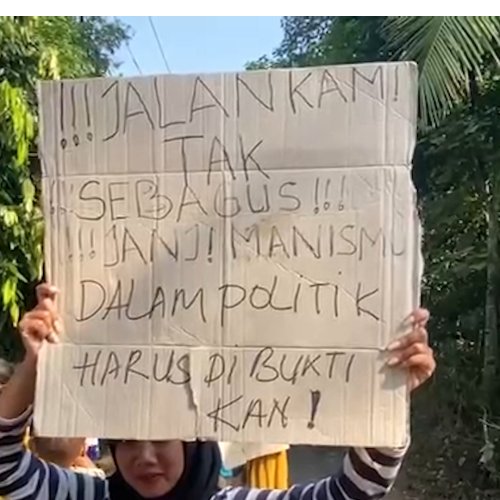 !!! JALAN KAMI
TAK
!!! SEBAGUS !!!
!!! JANJI MANISMU
DALAM POLITIK
HARUS DI BUKTI
KAN !